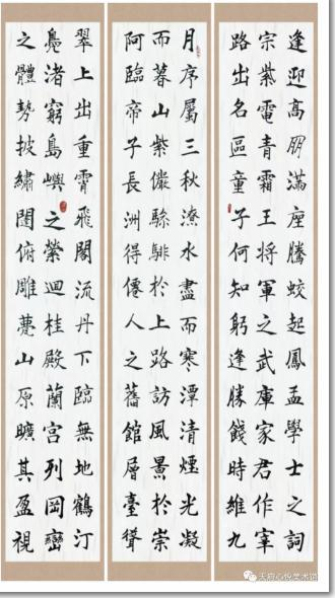 逢迎高朋滿座騰蛟起鳳孟學士之詞
宗紫電青霜王將軍之武庫家君作宰
路出名區童子何知躬逢勝餞時維九
月序屬三秋潦水盡而寒潭清煙光凝
而暮山紫儼驂騑於上路訪風景於崇
阿臨帝子長洲得僊人之舊館層臺聳
翠上出重霄飛閣流丹下臨無地鶴汀
鳧渚窮島嶼之縈迴桂殿蘭宮列岡巒
之體勢披繡闥俯雕甍山原曠其盈視